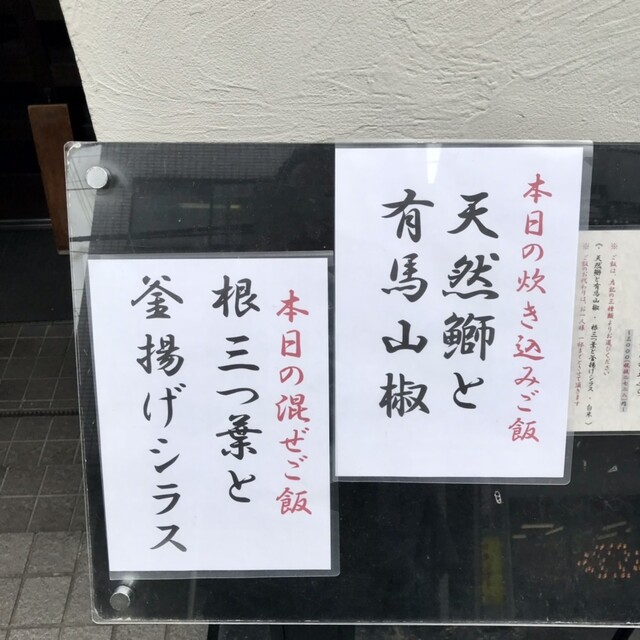 本日の炊き込みご飯
天然鰤と
有馬山椒
本日の混ぜご飯
根三つ葉と
釜揚げシラス